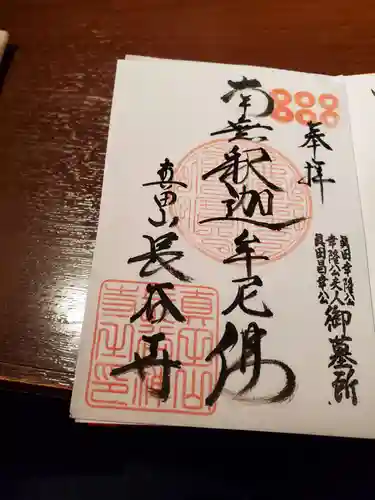 奉拝
真田幸隆公
幸隆公夫人
真田昌幸公
御墓所
南無釈迦牟尼佛
真田山
長谷寺